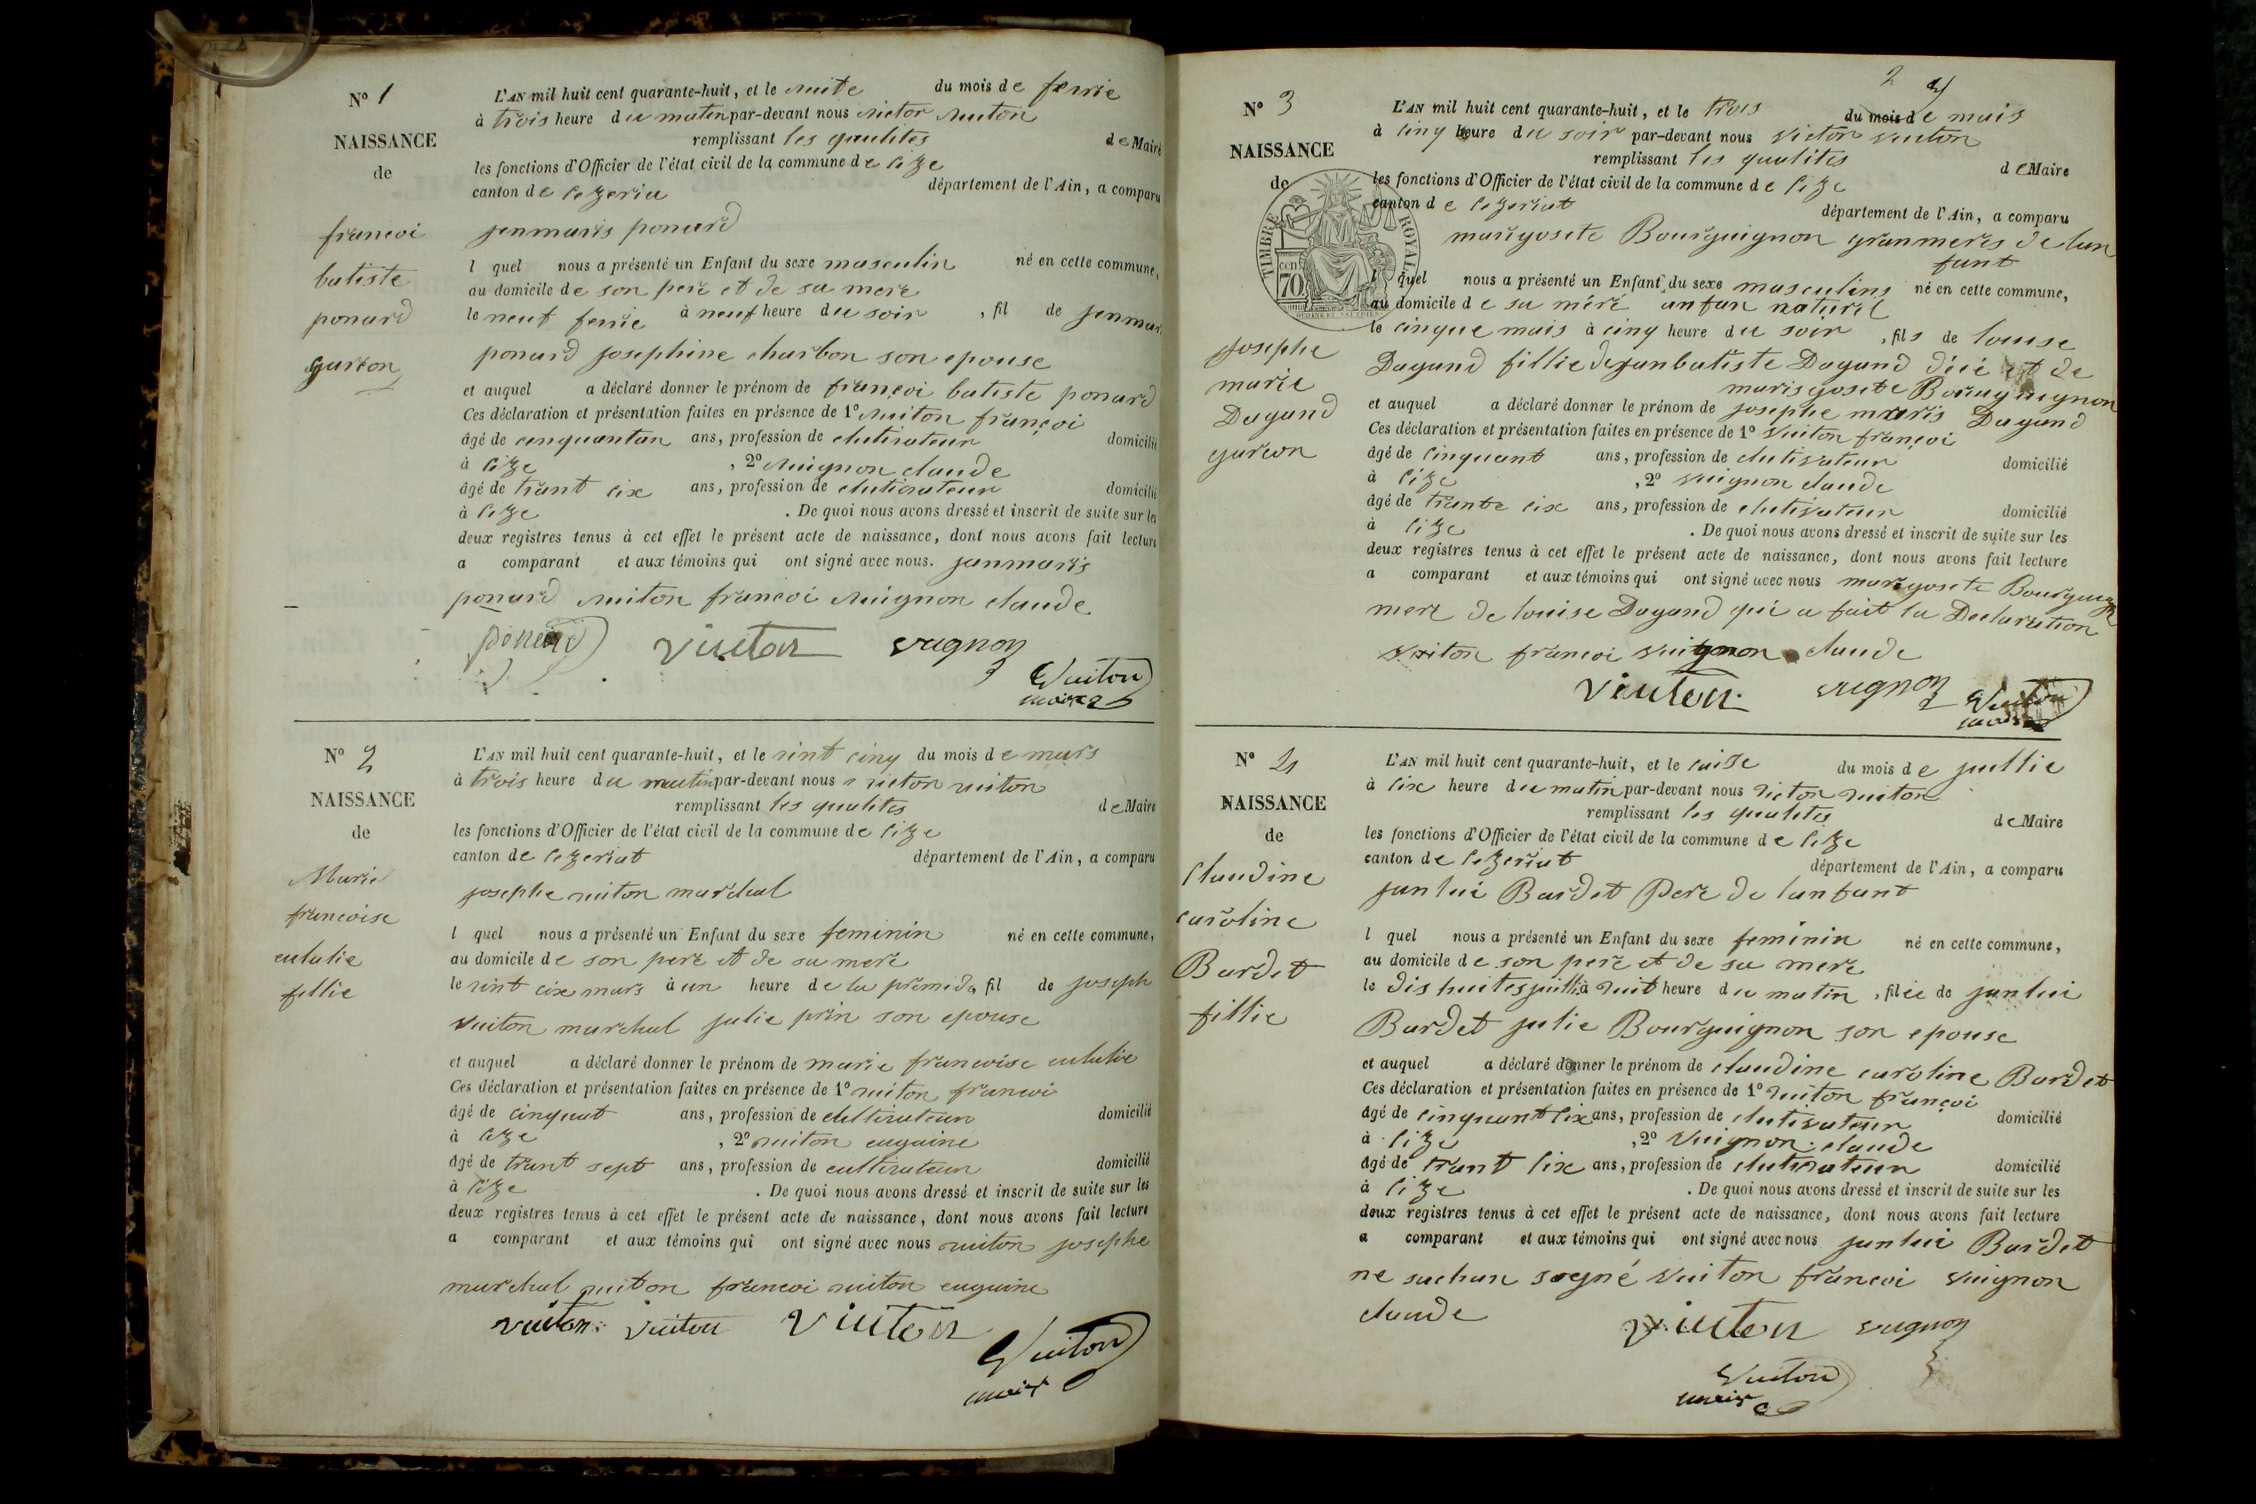 N° 1
NAISSANCE
de
francoi
batiste
ponard
garcon
L'AN mil huit cent quarante-huit, et le du mois de
à trois heure du matin par-devant nous victor vuiton
remplissant les qualites de Maire
les fonctions d'Officier de l'état civil de la commune de cize
canton de cezeria département de l'Ain, a comparu
janmaris ponard
l quel nous a présenté un Enfant du sexe masculin né en cette commune,
au domicile de son pere et de sa mere
le neuf à neuf heure du soir , fil de janmar
ponard josephine charbon son epouse
et auquel a déclaré donner le prénom de françoi batiste ponard
Ces déclaration et présentation faites en présence de 1° vuiton françoi
âgé de cenquantan ans, profession de clutivateur domicilié
à cize , 2° vuignon claude
âgé de trant cix ans, profession de clutivateur domicilié
à cize . De quoi nous avons dressé et inscrit de suite sur les
deux registres tenus à cet effet le présent acte de naissance, dont nous avons fait lecture
a comparant et aux témoins qui ont signé avec nous. janmaris
ponard vuiton francoi vuignon claude
ponard vuiton vugnon
Vuiton
maire
N° 2
NAISSANCE
de
Marie
francoise
eulalie
fillie
L'AN mil huit cent quarante-huit, et le vint cinq du mois de mars
à trois heure du matin par-devant nous victon vuiton
remplissant les qualites de Maire
les fonctions d'Officier de l'état civil de la commune de cize
canton de cezeriat département de l'Ain, a comparu
josephe vuiton marchal
l quel nous a présenté un Enfant du sexe feminin né en cette commune,
au domicile de son pere et de sa mere
le vint cix mars à un heure de la fil de joseph
vuiton marchal julie prin son epouse
et auquel a déclaré donner le prénom de marie francoise eulalie
Ces déclaration et présentation faites en présence de 1° vuiton francoi
âgé de cinquat ans, profession de cultivateur domicilié
à cize , 2° vuiton eugaine
âgé de trant sept ans, profession de cultivateur domicilié
à cize . De quoi nous avons dressé et inscrit de suite sur les
deux registres tenus à cet effet le présent acte de naissance, dont nous avons fait lecture
a comparant et aux témoins qui ont signé avec nous vuiton josephe
marchal vuiton francoi vuiton eugaine
vuiton vuiton vuiton
Vuiton
maire
2
N° 3
NAISSANCE
de
TIMBRE ROYAL
cen. 70
josephe
marie
Dagand
garcon
L'AN mil huit cent quarante-huit, et le trois du mois de mais
à cinq heure du soir par-devant nous victon vuiton
remplissant les qualites de Maire
les fonctions d'Officier de l'état civil de la commune de cize
canton de cezeriat département de l'Ain, a comparu
marigosete Bourguignon granmeres de lan
fant
l quel nous a présenté un Enfant du sexe masculins né en cette commune,
au domicile de sa méré anfan naturel
le cinque mais à cinq heure du soir , fils de louise
Dagand fillie dejanbatiste Dagand et de
marisgosete Bourugnignon
et auquel a déclaré donner le prénom de josephe maris Dagand
Ces déclaration et présentation faites en présence de 1° vuiton françoi
âgé de cinquant ans, profession de clutivateur domicilié
à cize , 2° vuignon claude
âgé de trante cix ans, profession de clutivateur domicilié
à cize . De quoi nous avons dressé et inscrit de suite sur les
deux registres tenus à cet effet le présent acte de naissance, dont nous avons fait lecture
a comparant et aux témoins qui ont signé avec nous marigosete
mere de louise Dagand qui a fait la Declaration
vuiton francoi vuignon claude
vuiton vugnon Vuiton
maire
N° 4
NAISSANCE
de
Claudine
caroline
Bardet
fillie
L'AN mil huit cent quarante-huit, et le du mois de juillie
à cix heure du matin par-devant nous victon vuiton
remplissant les qualites de Maire
les fonctions d'Officier de l'état civil de la commune de cize
canton de cezeriat département de l'Ain, a comparu
janlui Bardet Pere de lanfant
l quel nous a présenté un Enfant du sexe feminin né en cette commune,
au domicile de son pere et de sa mere
le dis huites à vuit heure du matin , filie de janlui
Bardet julie Bourguignon son epouse
et auquel a déclaré donner le prénom de claudine caroline Bardet
Ces déclaration et présentation faites en présence de 1° vuiton françoi
âgé de cinquant cix ans, profession de clutivateur domicilié
à cize , 2° vuignon claude
âgé de trant cix ans, profession de clutivateur domicilié
à cize . De quoi nous avons dressé et inscrit de suite sur les
deux registres tenus à cet effet le présent acte de naissance, dont nous avons fait lecture
a comparant et aux témoins qui ont signé avec nous janlui Bardet
ne sachan segné vuiton francoi vuignon
claude
vuiton vugnon
Vuiton
maire